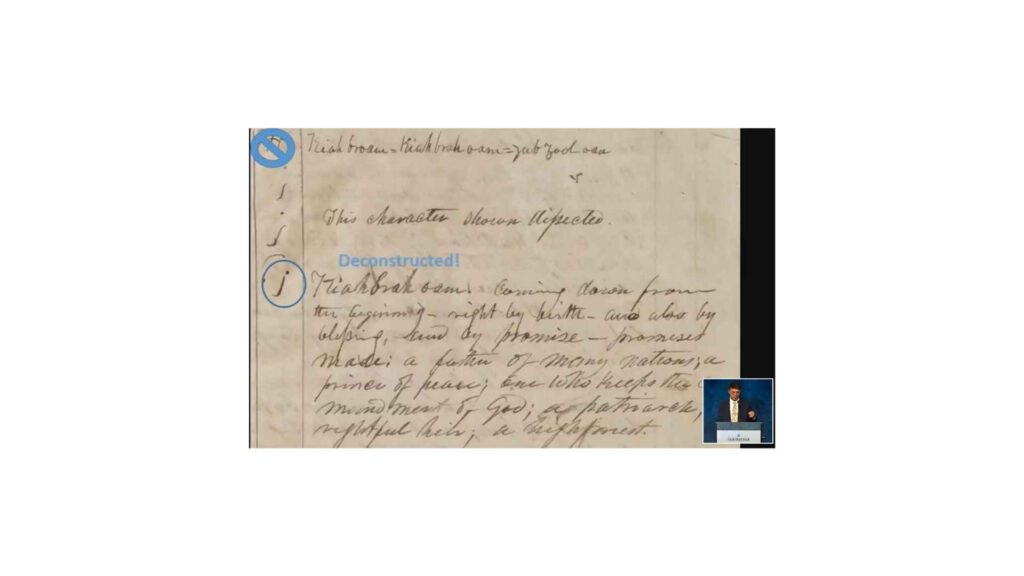 Kiah broam = Kiah brah oam = zub zool oan
This character shown dissected.
Deconstructed!
j Kiah brah oam. Coming down from
the begining – right by birth – and also by
blessing, and by promise – promises
made; a father of many nations; a
prince of peace; one who keeps the
mandment of God; a patriarch,
rightful heir; a highpriest.